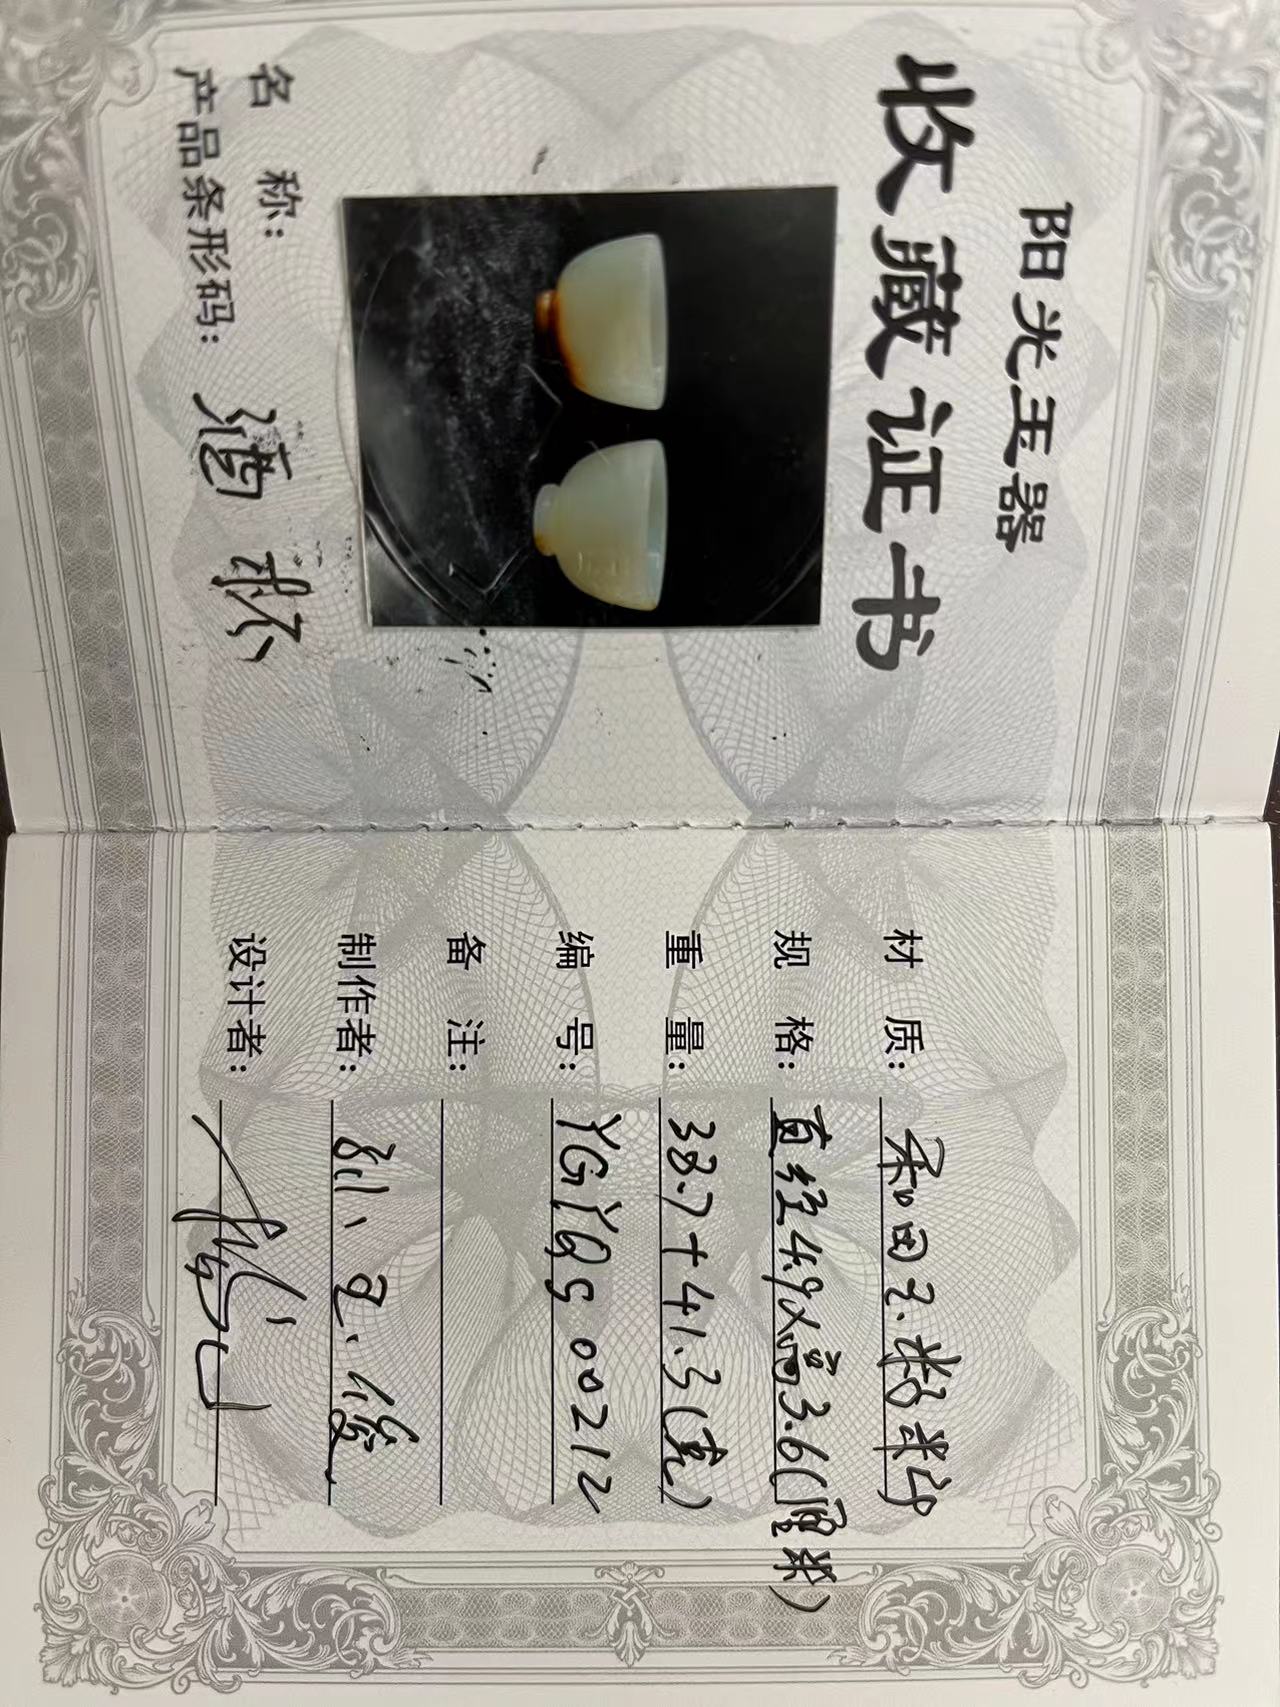 阳光玉器
收藏证书
名称:
产品条形码:
酒杯
材质: 和田玉.籽料
规格: 直径4.9X高3.6(厘米)
重量: 38.7+41.3(克)
编号: YGYQS00212
备注:
制作者:
设计者: